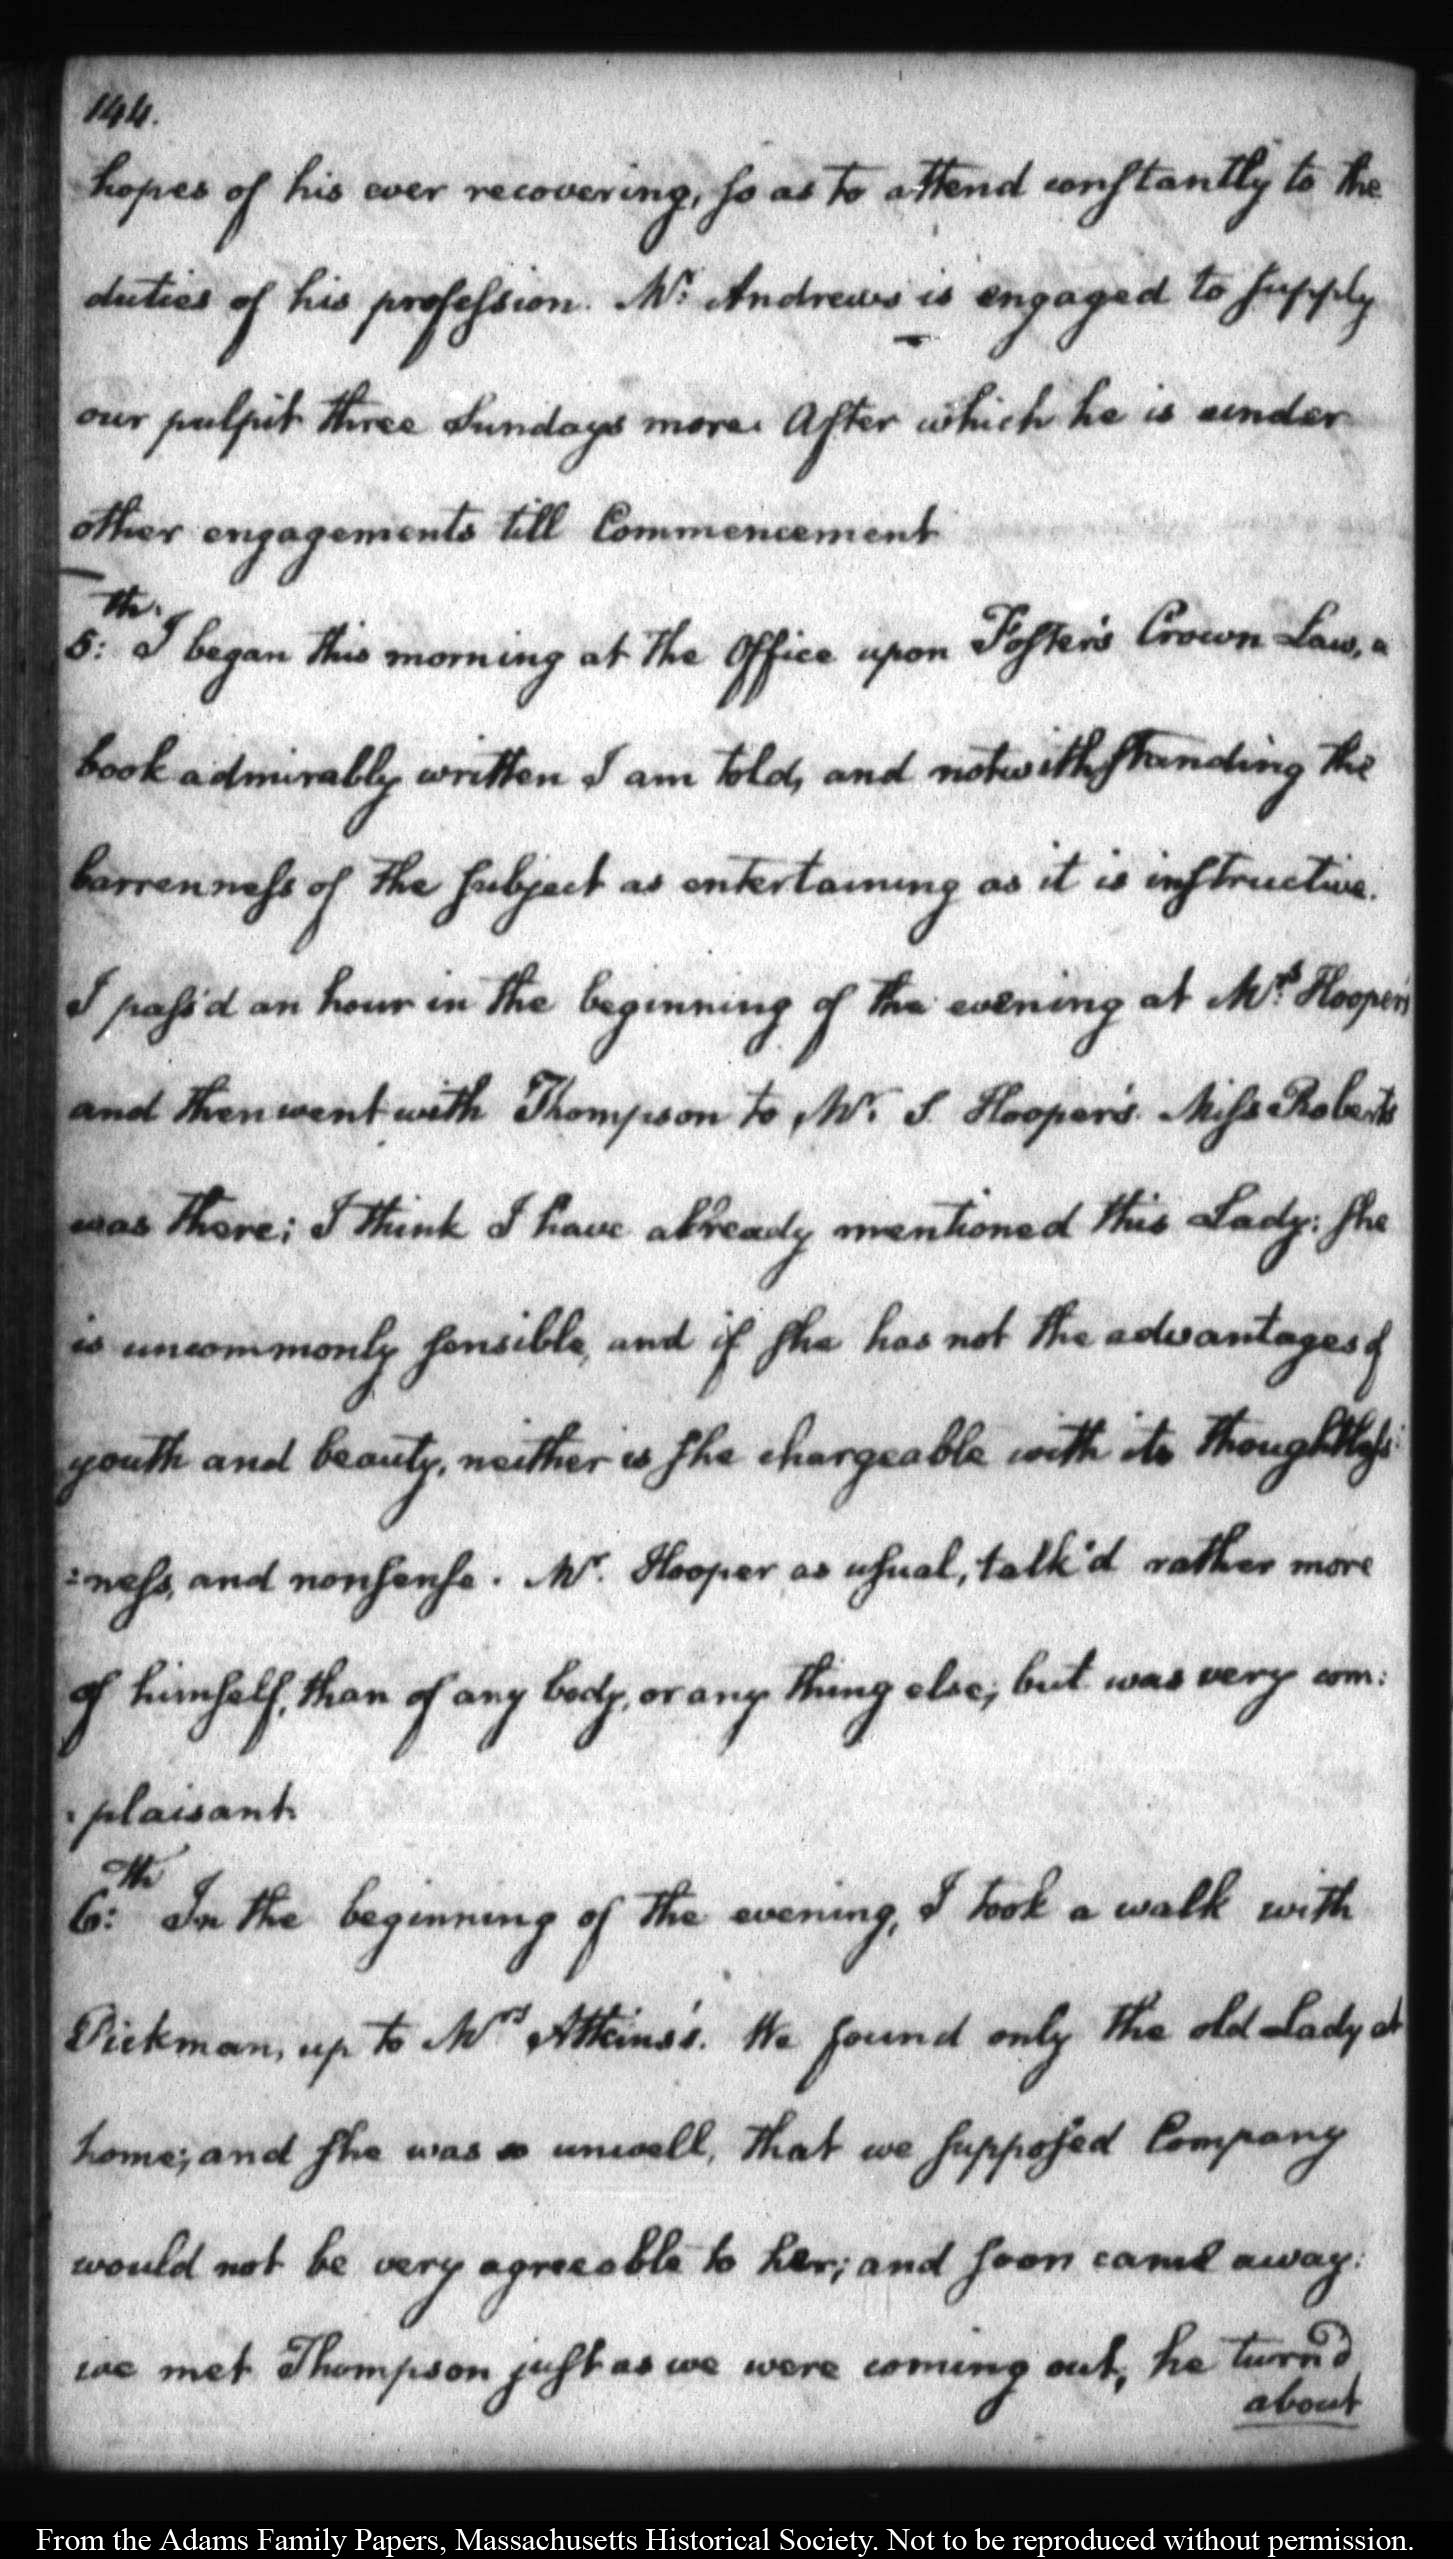 144.
hopes of his ever recovering, so as to attend constantly to the
duties of his profession. Mr: Andrews is engaged to supply
our pulpit three Sundays more. After which he is under
other engagements till Commencement
5:th I began this morning at the Office upon Foster's Crown Law, a
book admirably written I am told, and notwithstanding the
barrenness of the subject as entertaining as it is instructive.
I pass'd an hour in the beginning of the evening at Mrs. Hooper's
and then went with Thompson to Mr. S. Hooper's. Miss Roberts
was there; I think I have already mentioned this Lady: she
is uncommonly sensible, and if she has not the advantages of
youth and beauty, neither is she chargeable with its thoughtless:
:ness, and nonsense. Mr. Hooper as usual, talk'd rather more
of himself, than of any body, or any thing else; but was very com:
:plaisant.
6:th In the beginning of the evening, I took a walk with
Pickman, up to Mrs Atkins's. We found only the old Lady at
home; and she was so unwell, that we supposed Company
would not be very agreeable to her; and soon came away:
we met Thompson just as we were coming out, he turn'd
about
From the Adams Family Papers, Massachusetts Historical Society. Not to be reproduced without permission.